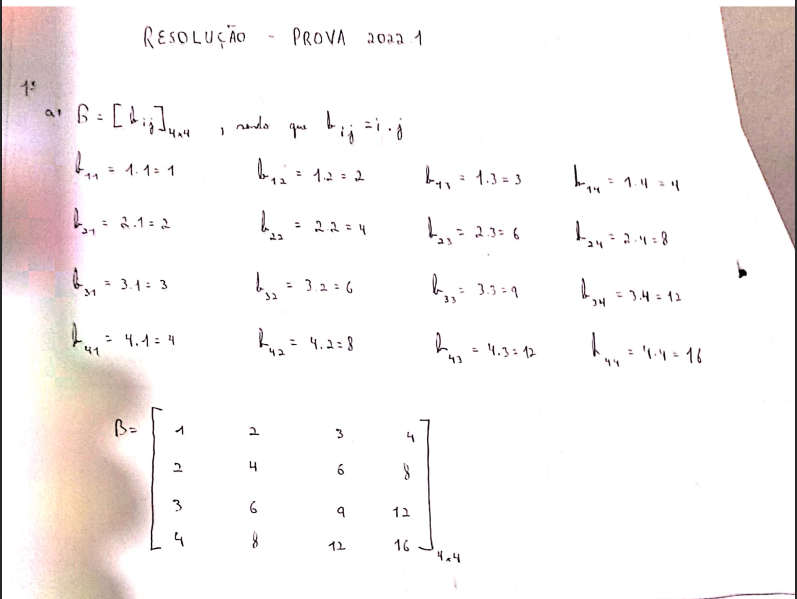 RESOLUÇÃO - PROVA 2022 1
1º
a) B = [b_ij]_4x4 , sendo que b_ij = i . j
b_11 = 1.1 = 1 b_12 = 1.2 = 2 b_13 = 1.3 = 3 b_14 = 1.4 = 4
b_21 = 2.1 = 2 b_22 = 2.2 = 4 b_23 = 2.3 = 6 b_24 = 2.4 = 8
b_31 = 3.1 = 3 b_32 = 3.2 = 6 b_33 = 3.3 = 9 b_34 = 3.4 = 12
b_41 = 4.1 = 4 b_42 = 4.2 = 8 b_43 = 4.3 = 12 b_44 = 4.4 = 16
B = [ 1 2 3 4
2 4 6 8
3 6 9 12
4 8 12 16 ]_4x4